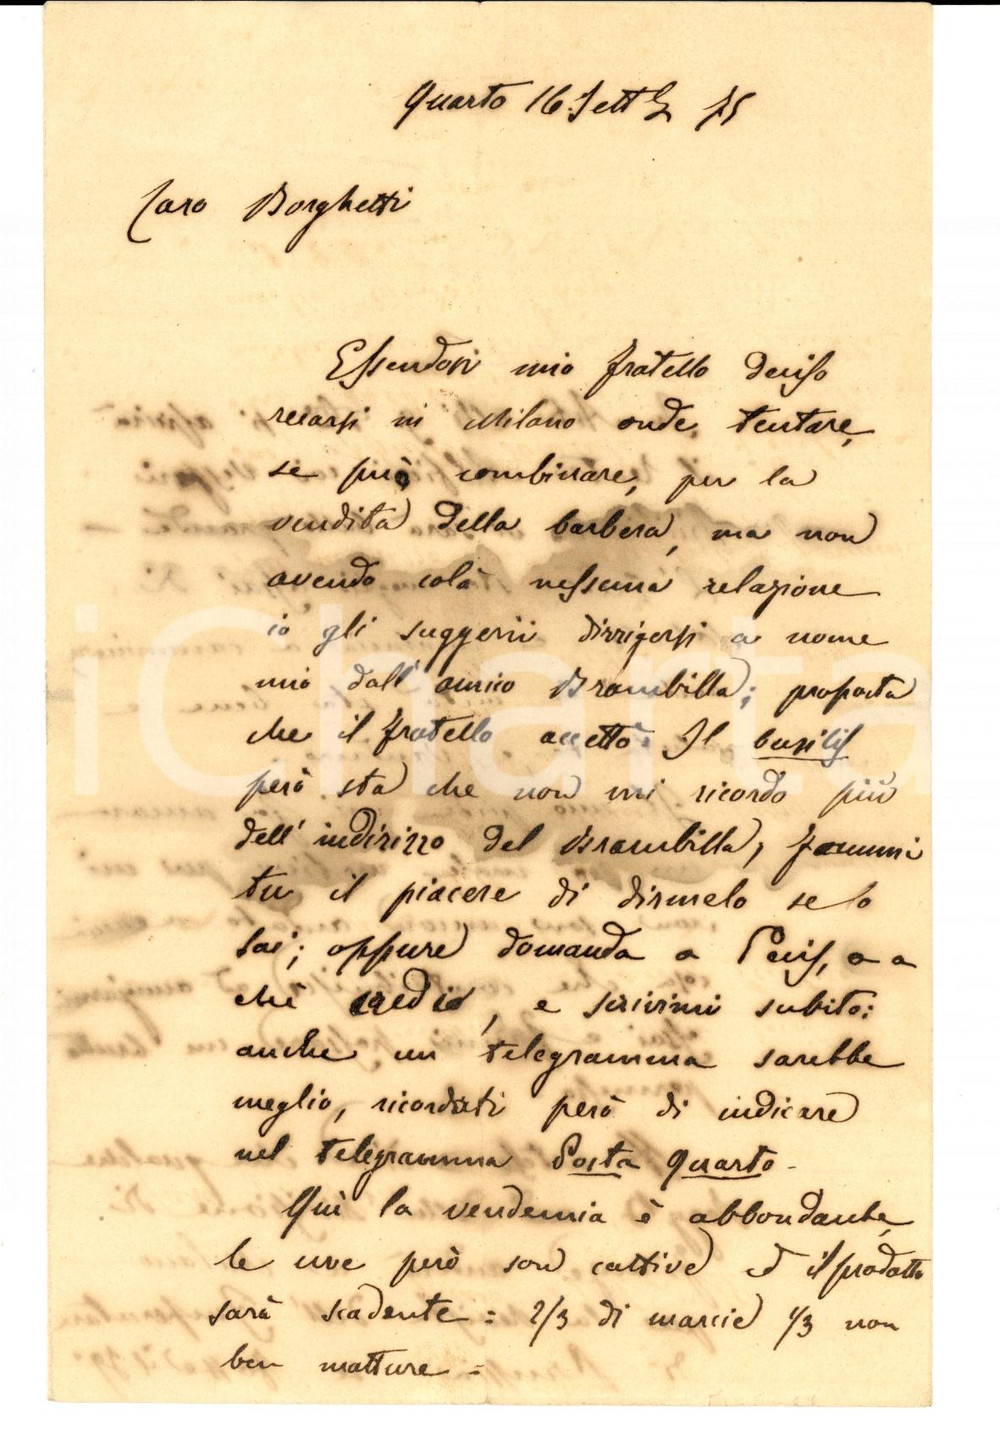 Quarto 16 Sett 75
Caro Borghetti
Essendosi mio fratello deciso
recarsi in Milano onde tentare,
se può combinare, per la
vendita della barbera, ma non
avendo colà nessuna relazione
io gli suggerii dirrigersi a nome
mio dall' amico Brambilla; proposta
che il fratello accettò. Il busilis
però sta che non mi ricordo più
dell' indirizzo del Brambilla, fammi
tu il piacere di dirmelo se lo
sai; oppure domanda a o a
chè credi, e scrivimi subito:
anche un telegramma sarebbe
meglio, ricordati però di indicare
nel telegramma Posta Quarto -
Quì la vendemia è abbondante,
le uve però son cattive ed il prodotto
sarà scadente = 2/3 di marcie 1/3 non
ben matture =
iCharta